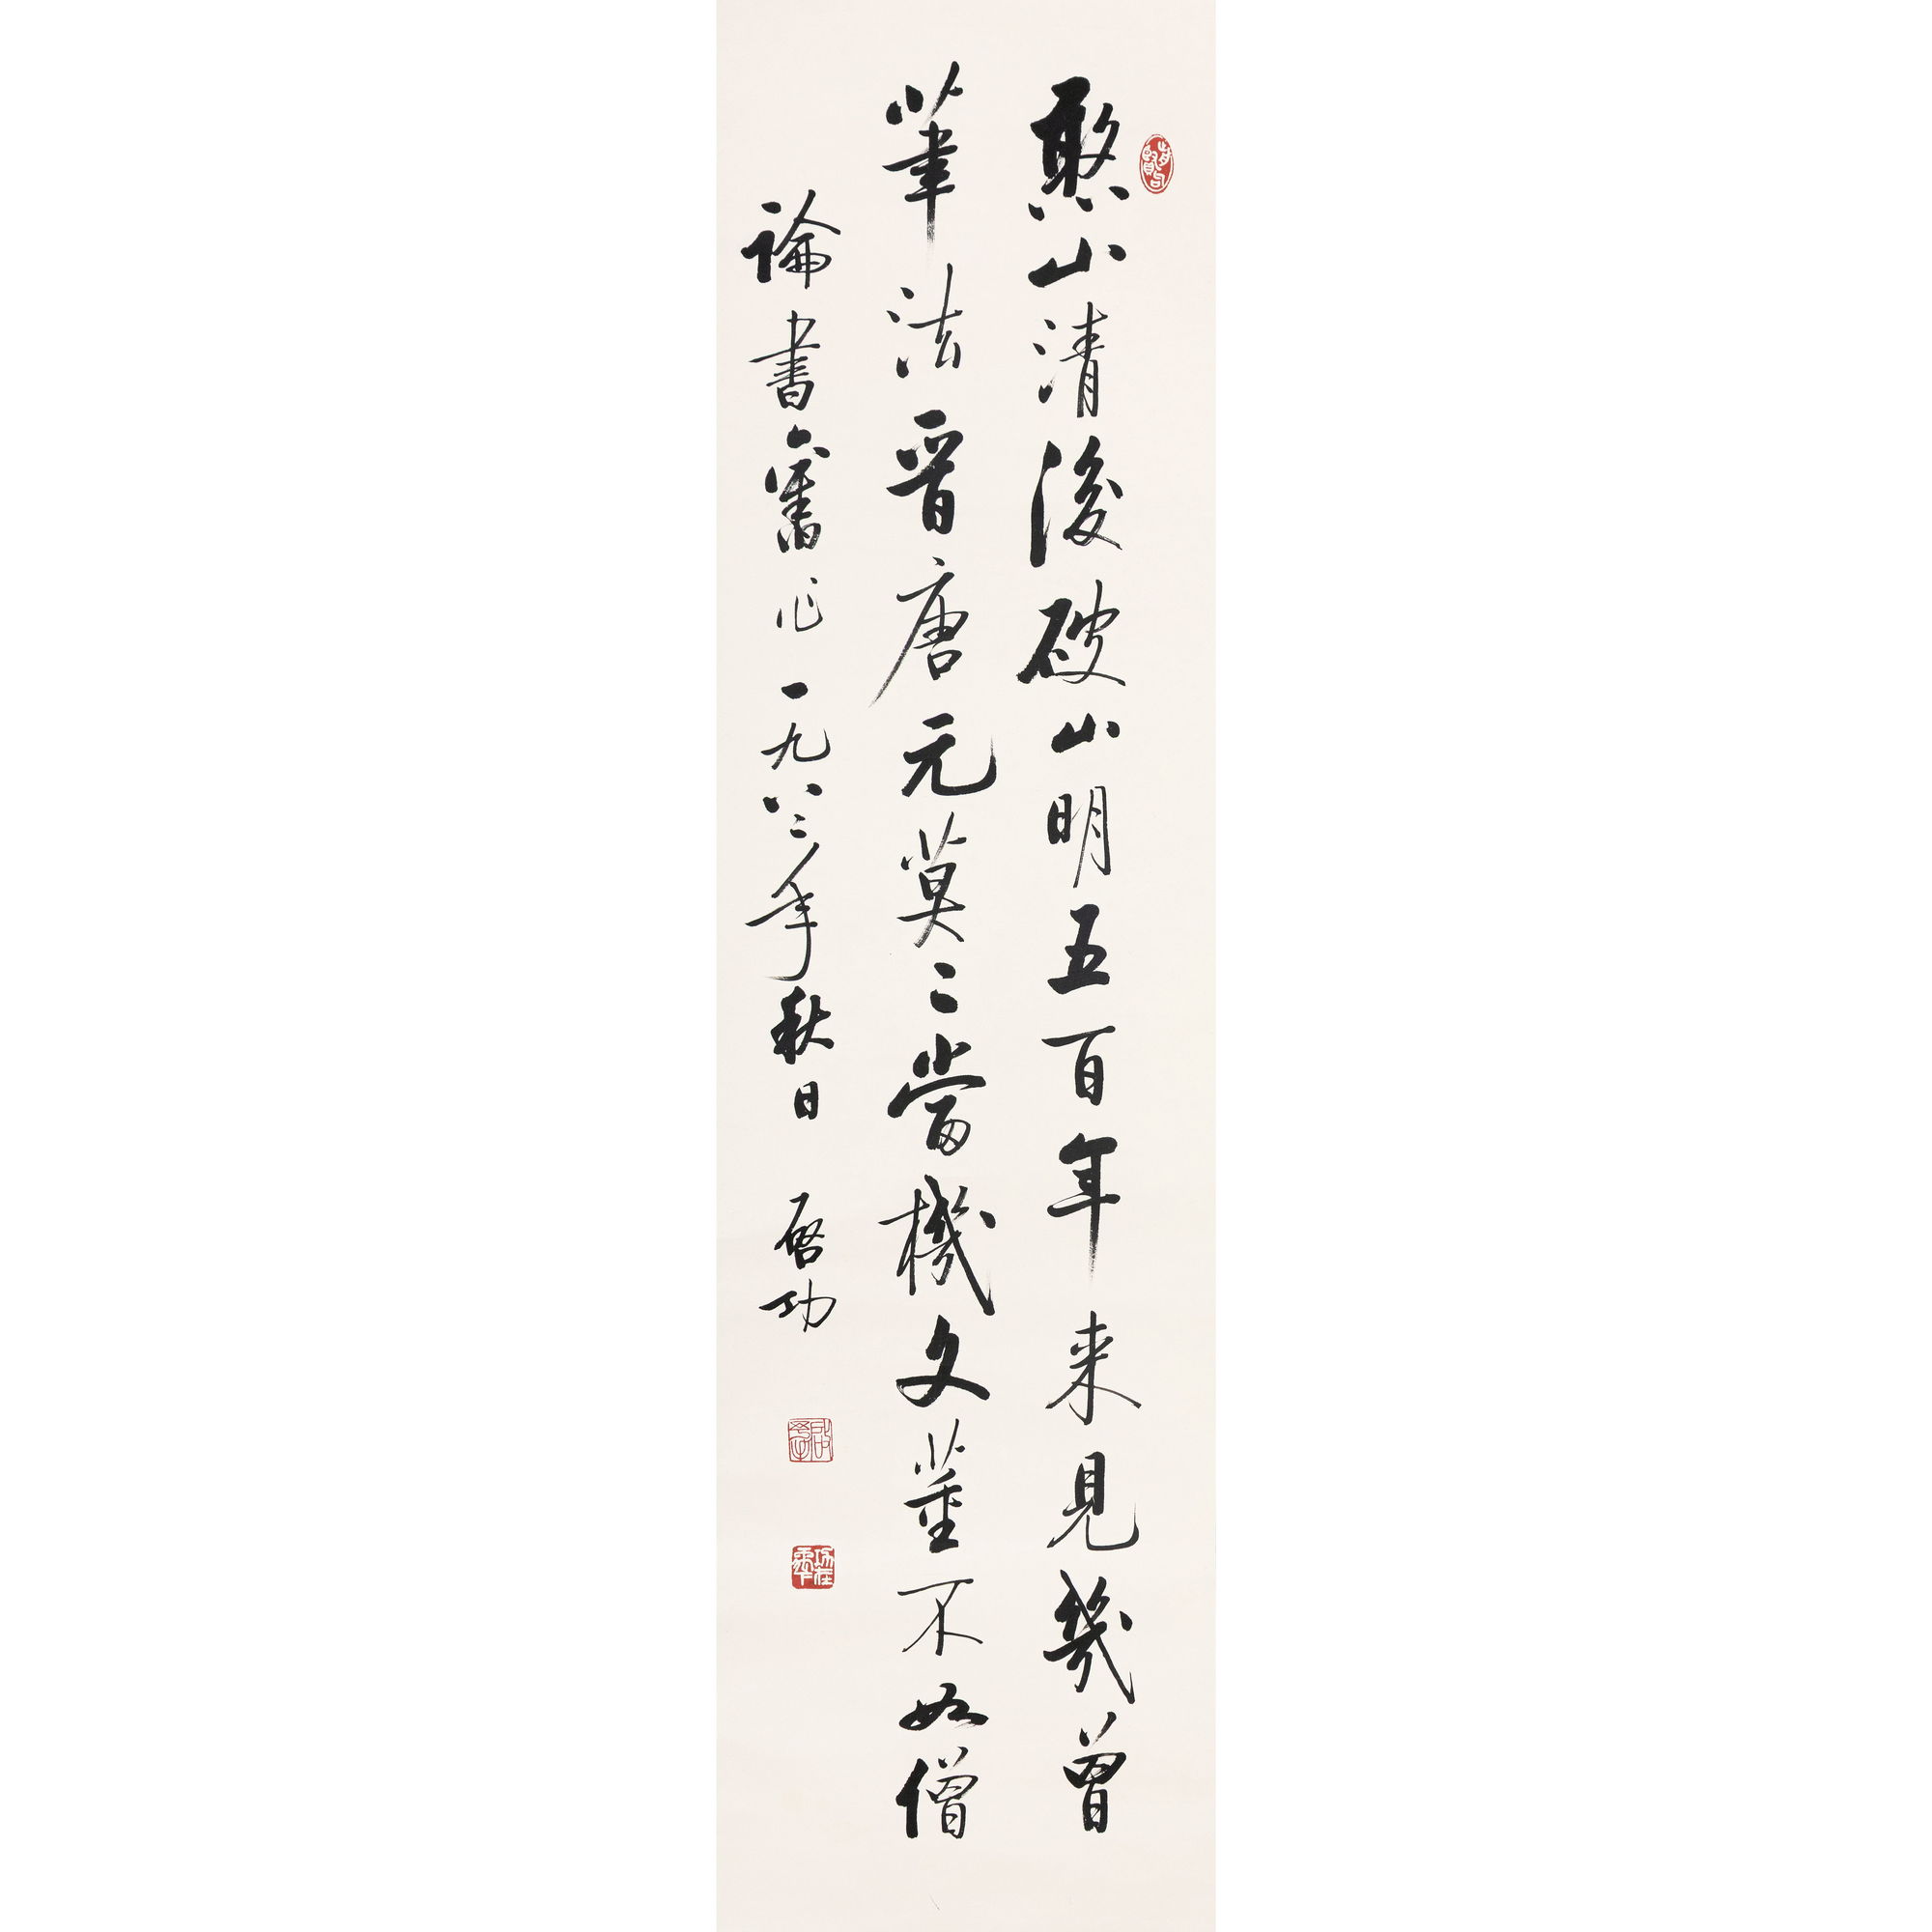 憨山清後破山明五百年来見幾曾
筆法晋唐元莫二當機文董不如僧
論書舊作一九八二年秋日 啓功